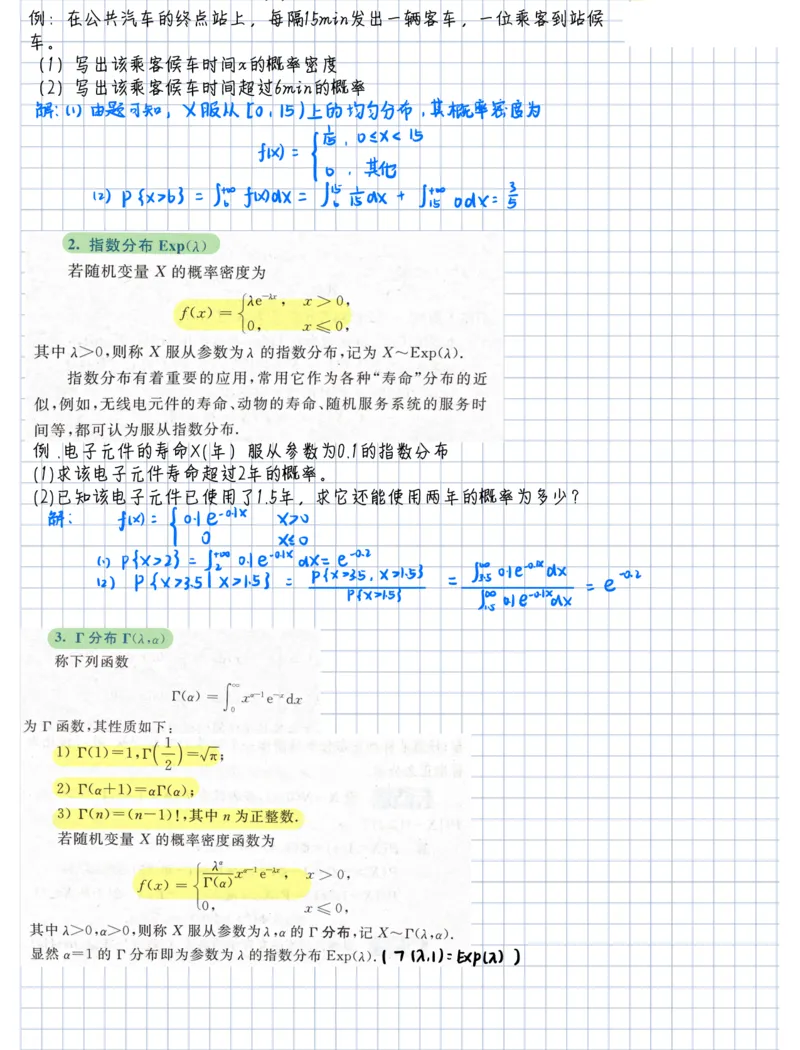 例：在公共汽车的终点站上，每隔15min发出一辆客车，一位乘客到站候
车。
(1) 写出该乘客候车时间x的概率密度
(2) 写出该乘客候车时间超过6min的概率
解：(1) 由题可知，X服从[0,15)上的均匀分布，其概率密度为
f(x) = { 1/15, 0≤x<15
0, 其他
(2) P{x>6} = ∫₆^{+∞} f(x)dx = ∫₆^{15} 1/15 dx + ∫₁₅^{+∞} 0dx = 3/5
2. 指数分布 Exp(λ)
若随机变量 X 的概率密度为
f(x) = { λe^{-λx}, x>0,
0, x≤0,
其中 λ>0,则称 X 服从参数为 λ 的指数分布,记为 X~Exp(λ).
指数分布有着重要的应用,常用它作为各种“寿命”分布的近
似,例如,无线电元件的寿命、动物的寿命、随机服务系统的服务时
间等,都可认为服从指数分布.
例.电子元件的寿命X(年) 服从参数为0.1的指数分布
(1)求该电子元件寿命超过2年的概率。
(2)已知该电子元件已使用了1.5年，求它还能使用两年的概率为多少？
解： f(x) = { 0.1e^{-0.1x} x>0
0 x≤0
(1) P{x>2} = ∫₂^{+∞} 0.1e^{-0.1x}dx = e^{-0.2}
(2) P{x>3.5 | x>1.5} = P{x>3.5, x>1.5} / P{x>1.5} = ∫_{3.5}^{∞} 0.1e^{-0.1x}dx / ∫_{1.5}^{∞} 0.1e^{-0.1x}dx = e^{-0.2}
3. Γ 分布 Γ(λ,α)
称下列函数
Γ(α) = ∫₀^∞ x^{α-1}e^{-x}dx
为 Γ 函数,其性质如下:
1) Γ(1)=1,Γ(1/2)=√π;
2) Γ(α+1)=αΓ(α);
3) Γ(n)=(n-1)!,其中 n 为正整数.
若随机变量 X 的概率密度函数为
f(x) = { λ^α/Γ(α) x^{α-1}e^{-λx}, x>0,
0, x≤0,
其中 λ>0,α>0,则称 X 服从参数为 λ,α 的 Γ 分布,记 X~Γ(λ,α).
显然 α=1 的 Γ 分布即为参数为 λ 的指数分布 Exp(λ). (Γ(λ,1)=Exp(λ))